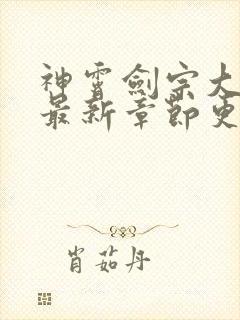 神霄劍宗大
最新章節更
肖茹丹